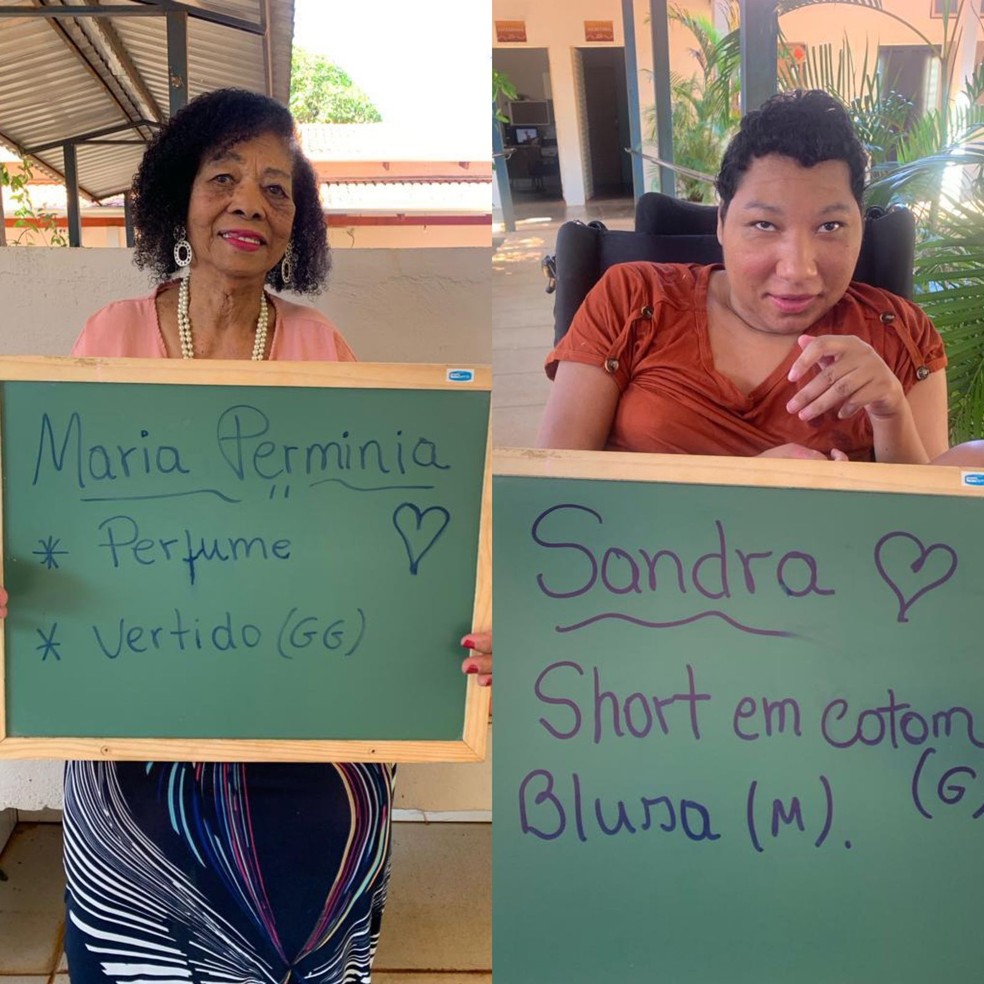 Maria Perminia
* Perfume
* Vertido (GG)
Sandra
Short em cotom
(G)
Blusa (M).